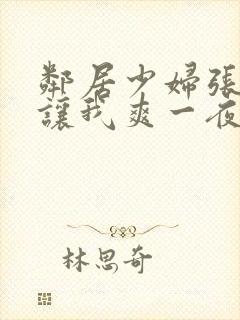 鄰居少婦張
讓我爽一夜
林思奇